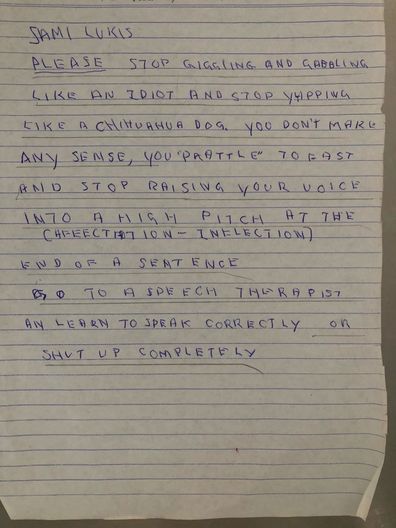 SAMI LUKIS
PLEASE STOP GIGGLING AND GABBLING
LIKE AN IDIOT AND STOP YAPPING
LIKE A CHIHUAHUA DOG. YOU DON'T MAKE
ANY SENSE, YOU "PRATTLE" TO FAST
AND STOP RAISING YOUR VOICE
INTO A HIGH PITCH AT THE
(AFFECTATION - INFLECTION)
END OF A SENTENCE
GO TO A SPEECH THERAPIST
AN LEARN TO SPEAK CORRECTLY OR
SHUT UP COMPLETELY